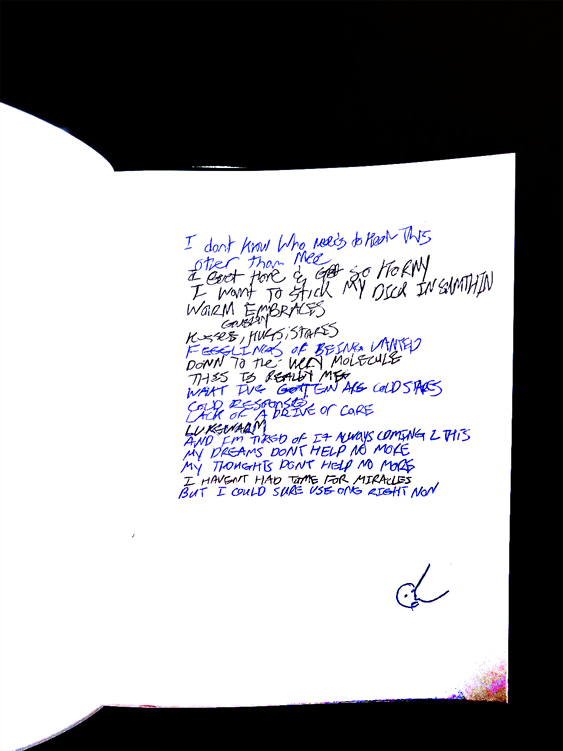 I dont know Who needs to Hear This
other than Mee
I GOT Home & Get SO HORNY
I WANT TO STICK MY DICK IN SUMTHIN
WARM EMBRACES
KISSES, HUGS, STARES
FEEELINGS OF BEING WANTED
DOWN TO the VERY MOLECULE
THIS IS REALLY ME
WHAT IVE GOTTEIN ARE COLD STARES
COLD RESPONSES
LACK OF A DRIVE OR CARE
LUKEWARM
AND I'M TIRED OF IT ALWAYS COMING 2 THIS
MY DREAMS DONT HELP NO MORE
MY THOUGHTS DONT HELP NO MORE
I HAVENT HAD TIME FOR MIRACLES
BUT I COULD SURE USE ONE RIGHT NOW